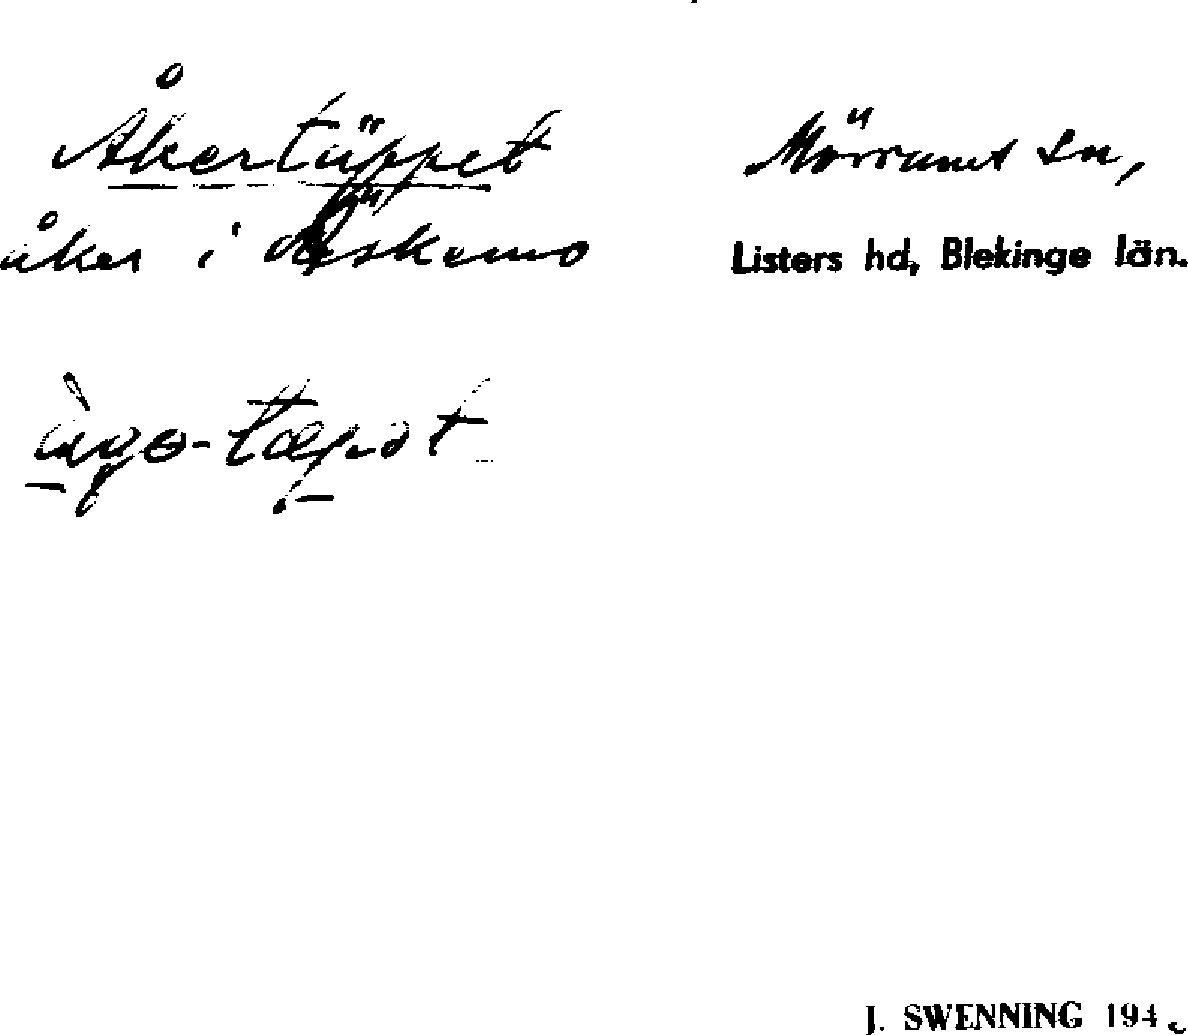 Åkertäppet
Mörrums sn,
åker i
Listers hd, Blekinge län.
J. SWENNING 194